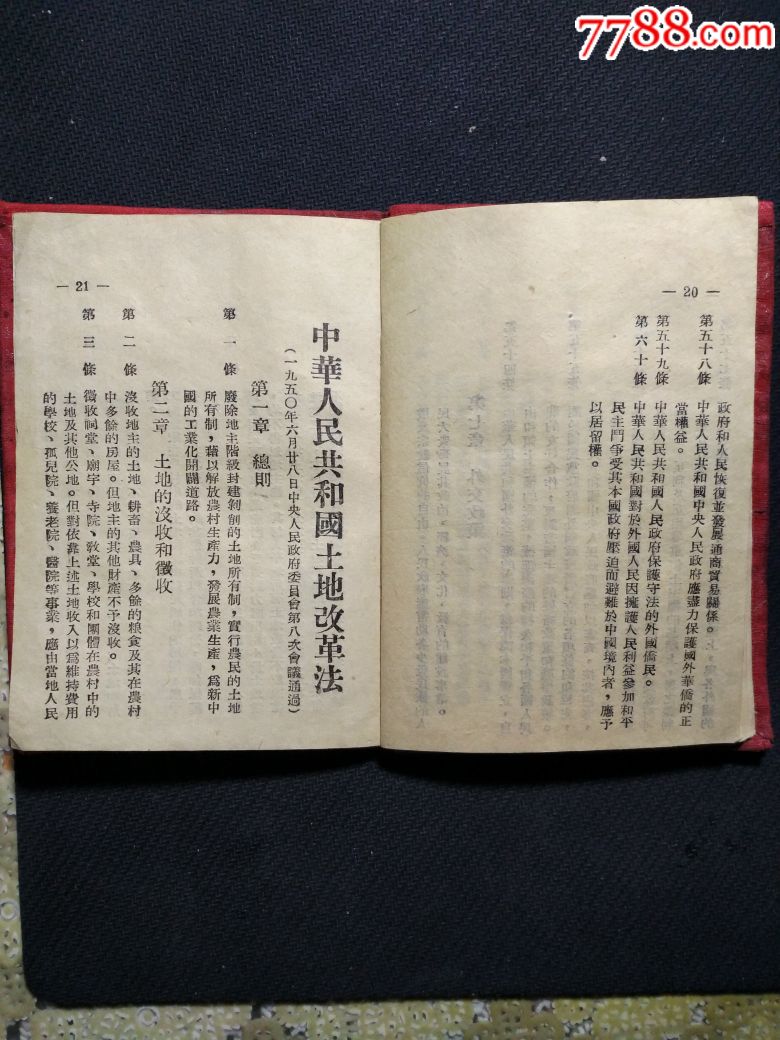 7788.com
— 20 —
政府和人民恢復並發展通商貿易關係。
第五十八條 中華人民共和國中央人民政府應盡力保護國外華僑的正
當權益。
第五十九條 中華人民共和國人民政府保護守法的外國僑民。
第六十條 中華人民共和國對於外國人民因擁護人民利益參加和平
民主鬥爭受其本國政府壓迫而避難於中國境內者，應予
以居留權。
— 21 —
中華人民共和國土地改革法
（一九五〇年六月廿八日中央人民政府委員會第八次會議通過）
第一章 總則
第一條 廢除地主階級封建剝削的土地所有制，實行農民的土地
所有制，藉以解放農村生產力，發展農業生產，爲新中
國的工業化開闢道路。
第二章 土地的沒收和徵收
第二條 沒收地主的土地、耕畜、農具、多餘的糧食及其在農村
中多餘的房屋。但地主的其他財產不予沒收。
第三條 徵收祠堂、廟宇、寺院、教堂、學校和團體在農村中的
土地及其他公地。但對依靠上述土地收入以爲維持費用
的學校、孤兒院、養老院、醫院等事業，應由當地人民